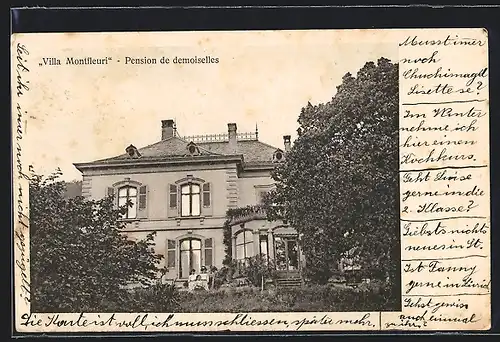 „Villa Montfleuri“ - Pension de demoiselles
Musst immer
noch
Chuchimagd
Lisette se?
Im Winter
nehme ich
hier einen
Kochkurs.
Geht Luise
gerne in die
2. Klasse?
Giebts nichts
neues in St.
Ist Fanny
gerne in
Gehst gewiss
auch einmal
Die Karte ist voll, ich muss schliessen, später mehr.
immer noch nicht